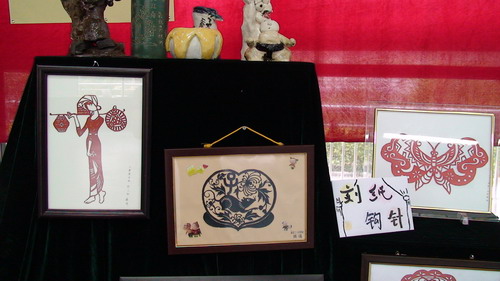 刻纸
钩针